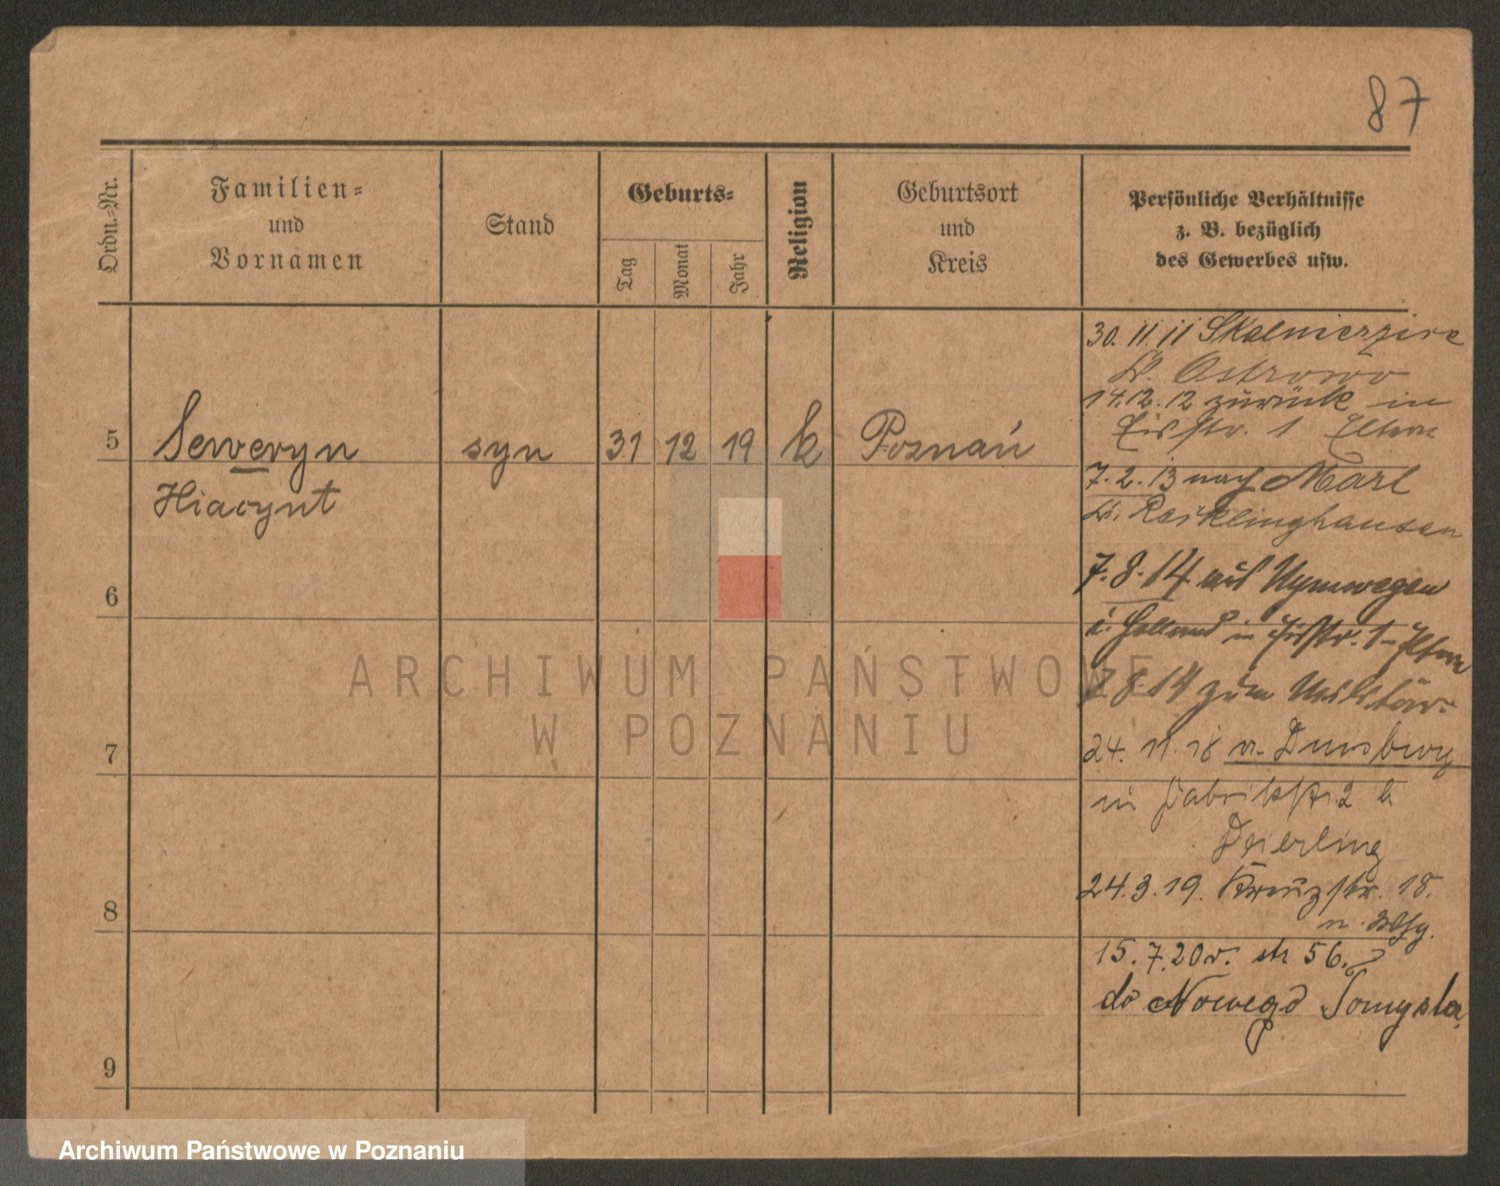 87
Ordn.-Nr.
Familien-
und
Vornamen
Stand
Geburts-
Tag
Monat
Jahr
Religion
Geburtsort
und
Kreis
Persönliche Verhältnisse
z. B. bezüglich
des Gewerbes usw.
30. 11. 11 Skalmierzice
Kr. Ostrowo
14.12.12 zurück in
Eisstr. 1 Eltern
5 Seweryn syn 31 12 19 k Poznań
Hiacynt
7. 2. 13 nach Marl
Kr. Recklinghausen
7. 8. 14 aus Nymwegen
i. Holland in Eisstr. 1 - Eltern
6
7. 8 14 zum Militär
24. 11. 18 v. Duisburg
7
in Fabrikstr 2 b
Deierling
24.3.19. Kreuzstr. 18.
8
15. 7.20 v. str 56.
do Nowego Tomysla
9
ARCHIWUM PAŃSTWOWE
W POZNANIU
Archiwum Państwowe w Poznaniu